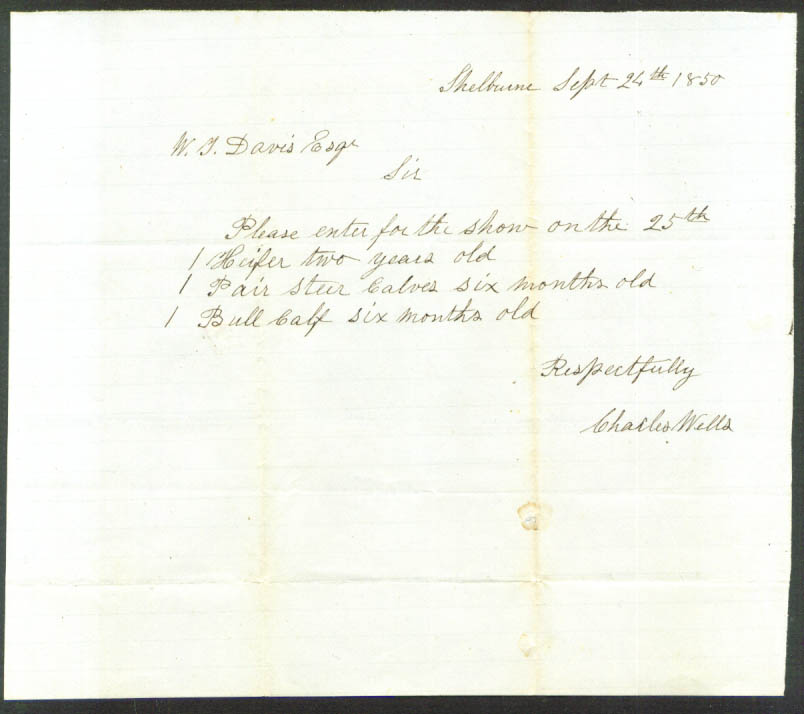 Shelburne Sept 24th 1850
W. T. Davis Esqr
Sir
Please enter for the show on the 25th
1 Heifer two years old
1 Pair Steer Calves six months old
1 Bull Calf six months old
Respectfully
Charles Wells